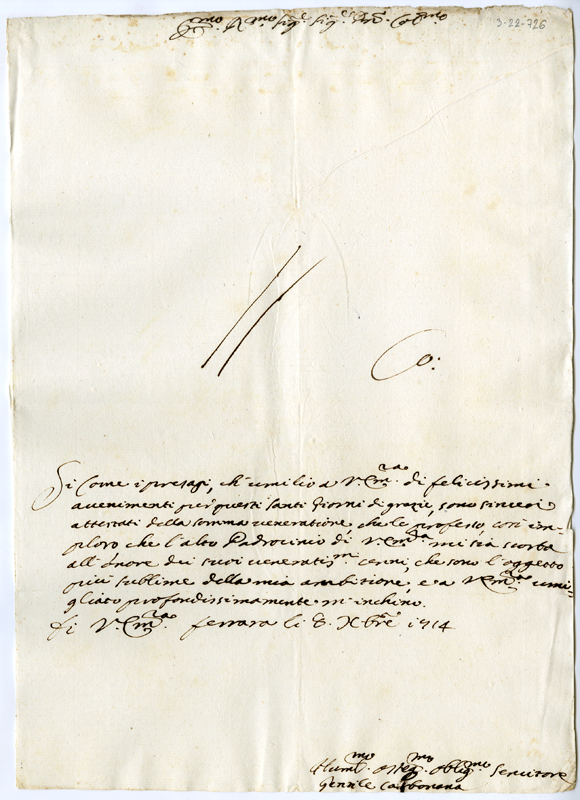 E.mo R.mo Sig.r Sig.r Pron. Col.mo
3-22-726
Co:
Si Come i presagi, ch'umilio a V.ra Em.za di felicissimi
avvenimenti per questi santi Giorni di grazie, sono sinceri
attestati della somma veneratione, che le professo, così im-
ploro che l'alto Padrocinio di V.ra Em.za mi sia scorta
all'onore dei suoi veneratis.mi cenni, che sono l'oggetto
più sublime della mia ambitione, e a V.ra Em.za umi-
gliato profondissimamente m'inchino.
Di V.ra Em.za Ferrara li 8. Xbre 1714
Humil.mo Dev.mo Oblig.mo Servitore
Gentile Carbonana